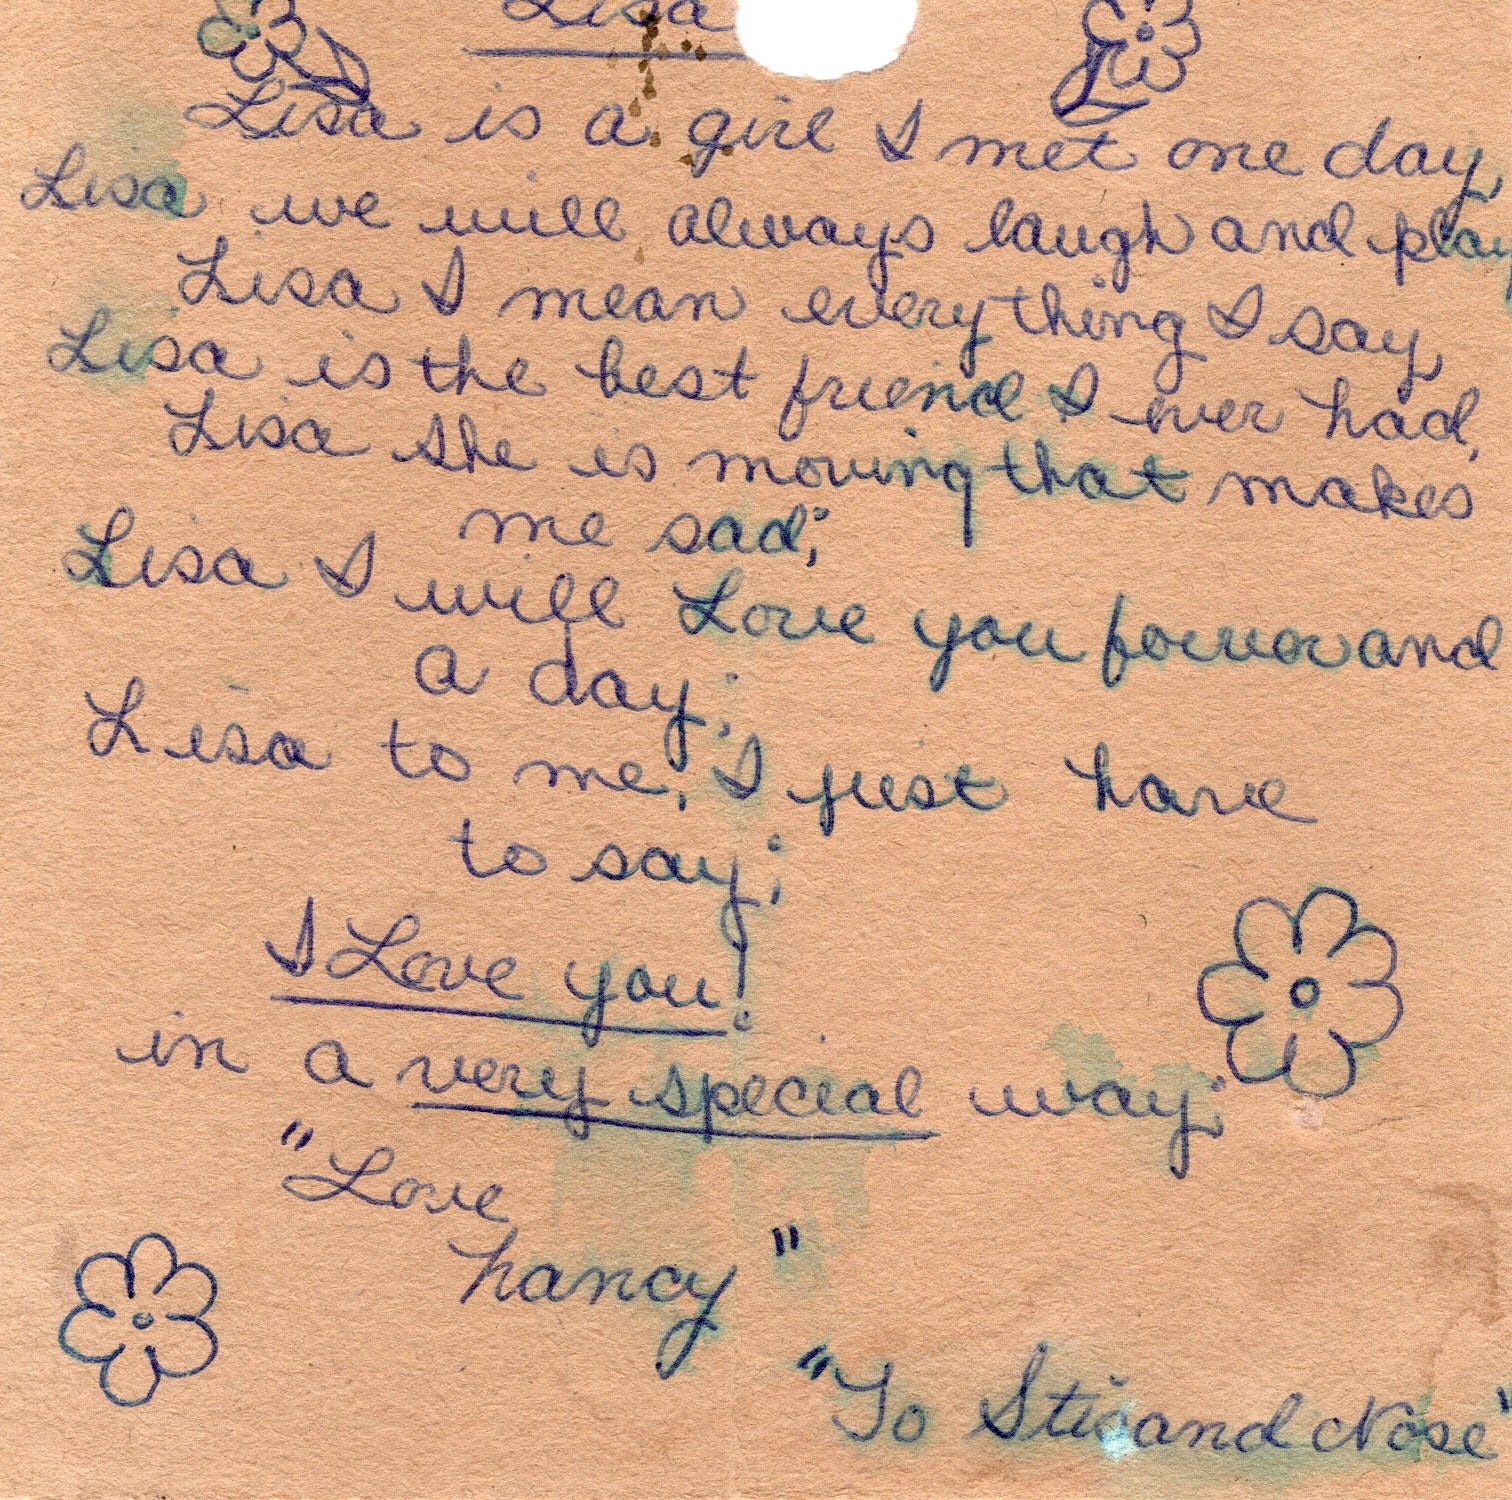 Lisa
Lisa is a girl I met one day,
Lisa we will always laugh and play
Lisa I mean everything I say,
Lisa is the best friend I ever had,
Lisa she is moving that makes
me sad;
Lisa I will Love you forever and
a day;
Lisa to me, I just have
to say;
I Love you!
in a very special way;
"Love
nancy"
"To and Nose"